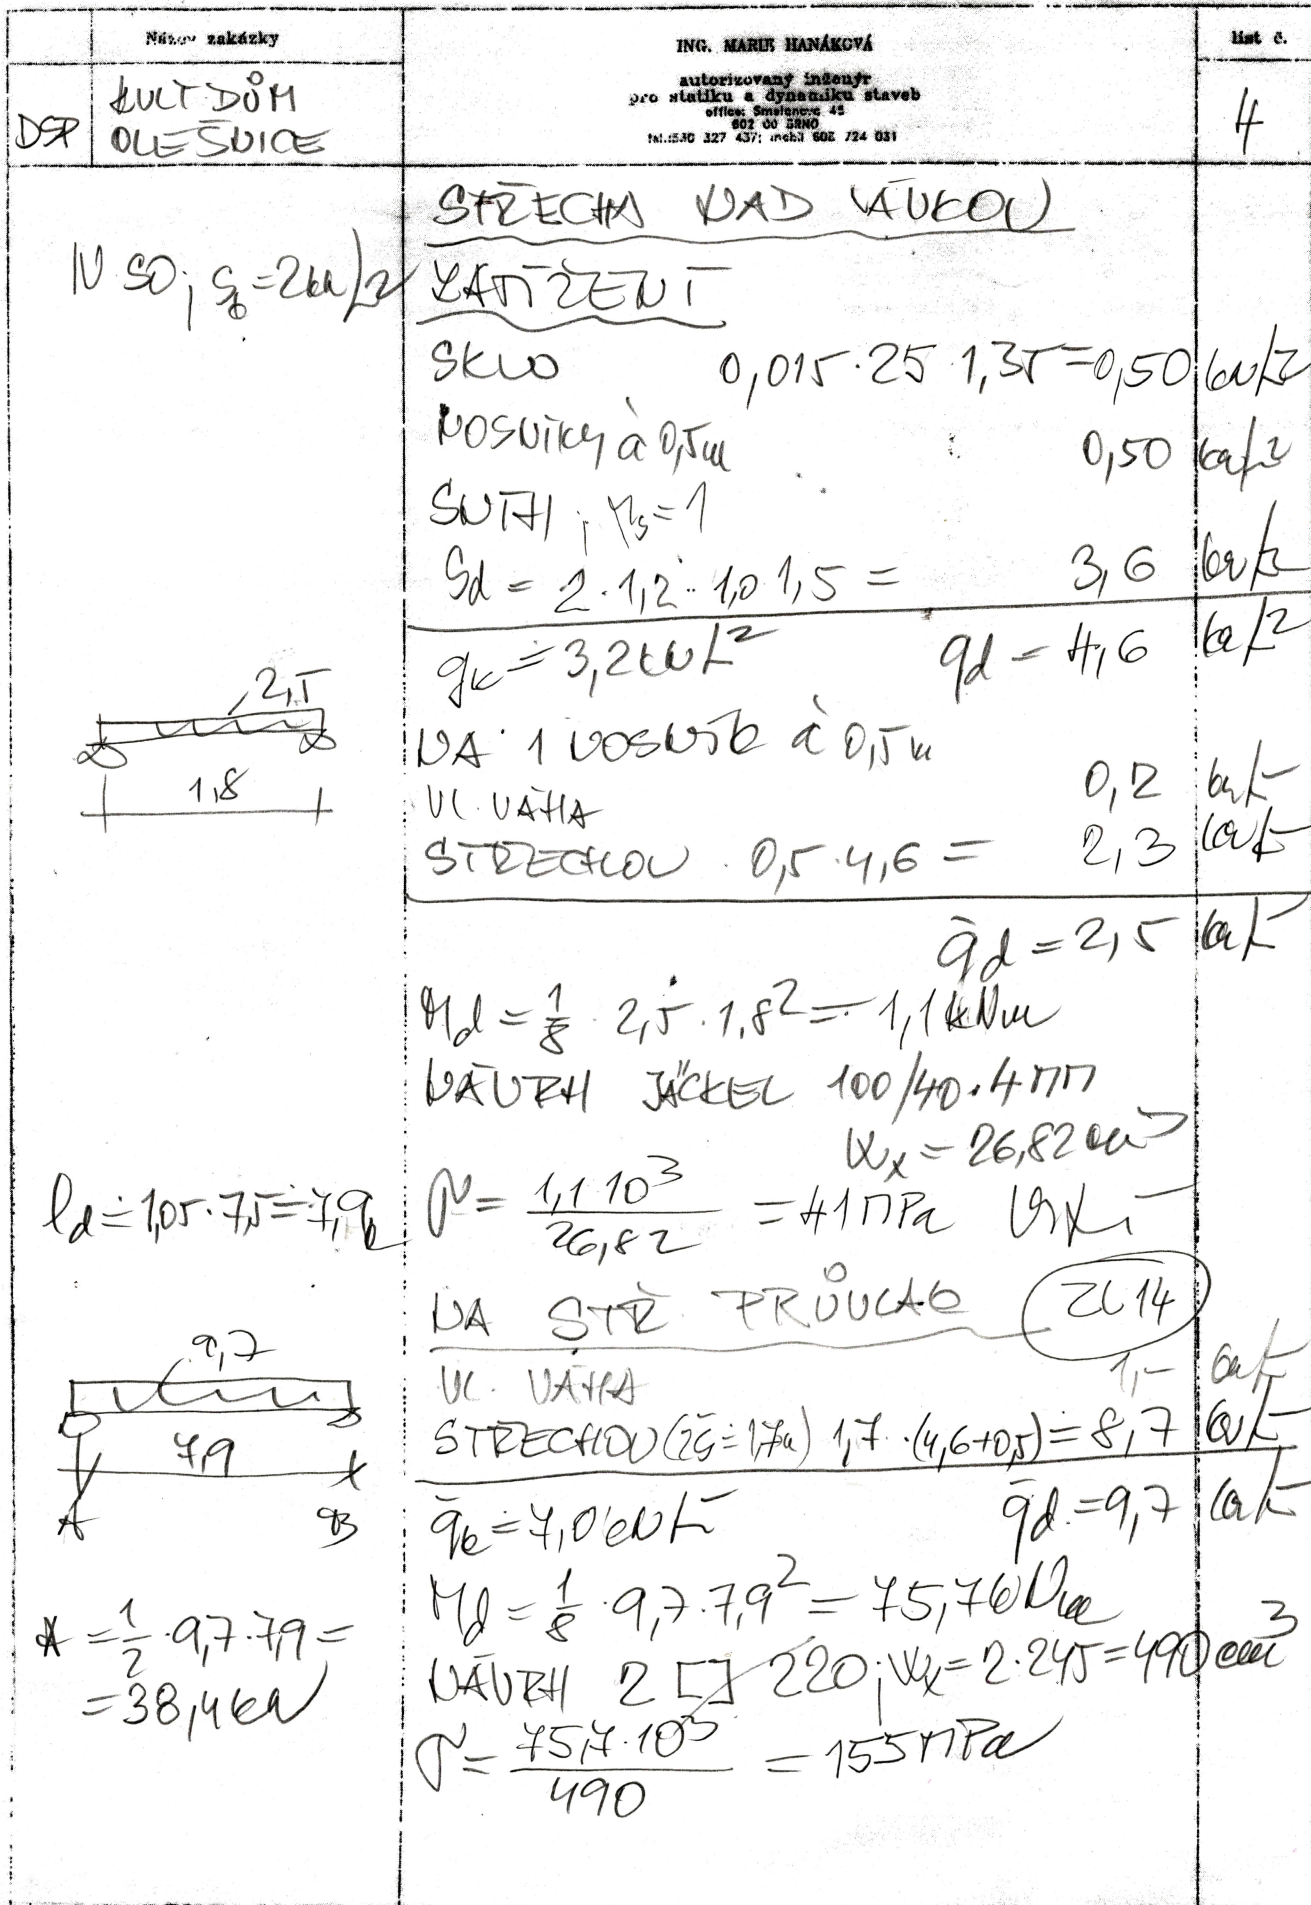 Název zakázky
ING. MARIE HANÁKOVÁ
list č.
autorizovaný inženýr
pro statiku a dynamiku staveb
office: Smetanova 45
602 00 BRNO
tel.:530 327 437; mobil 602 724 031
DSP
KULT DŮM
OLEŠNICE
4
STŘECHA NAD LÁVKOU
IV SO; s₀=2kN/m²
ZATÍŽENÍ
SKLO 0,015·25·1,35=0,50 kN/m²
NOSNÍKY à 0,5m 0,50 kN/m²
SNÍH; μs=1
Sd = 2·1,2·1,0·1,5 = 3,6 kN/m²
gk = 3,2kN/m² qd = 4,6 kN/m²
2,5
1,8
NA 1 NOSNÍK à 0,5m
VL. VÁHA 0,2 kN/m
STŘECHOU 0,5·4,6 = 2,3 kN/m
q̄d = 2,5 kN/m
Md = 1/8 · 2,5 · 1,8² = 1,1 kNm
NÁVRH JÄCKEL 100/40·4 mm
Wx = 26,82 cm³
ld = 1,05·7,5 = 7,9
σ = 1,1·10³/26,82 = 41 MPa
NA STŘ. PRŮVLAK ZL 14
VL. VÁHA 1,- kN/m
STŘECHOU (zš=1,7m) 1,7·(4,6+0,5) = 8,7 kN/m
9,7
7,9
A B
q̄k = 7,0 kN/m q̄d = 9,7 kN/m
Md = 1/8 · 9,7·7,9² = 75,7 kNm
A = 1/2 · 9,7·7,9 =
= 38,4 kN
NÁVRH 2 [] 220; Wx = 2·245 = 490 cm³
σ = 75,7·10³/490 = 155 MPa